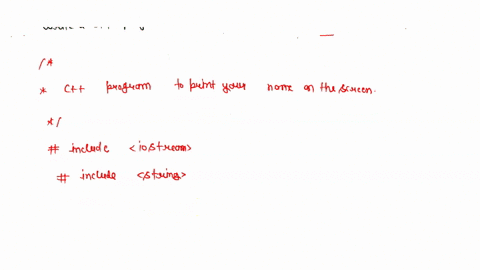 /*
* C++ program to print your name on the screen.
*/
# include <iostream>
# include <string>